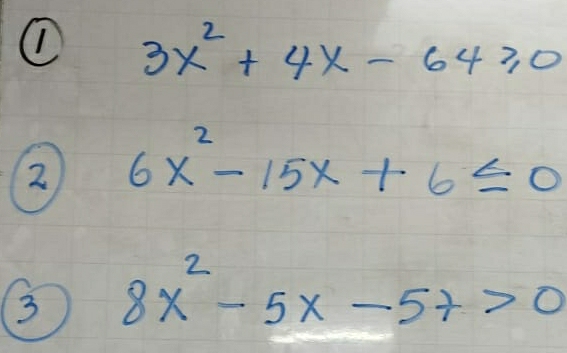 ① 3x² + 4x - 64 ≥ 0
② 6x² - 15x + 6 ≤ 0
③ 8x² - 5x - 57 > 0